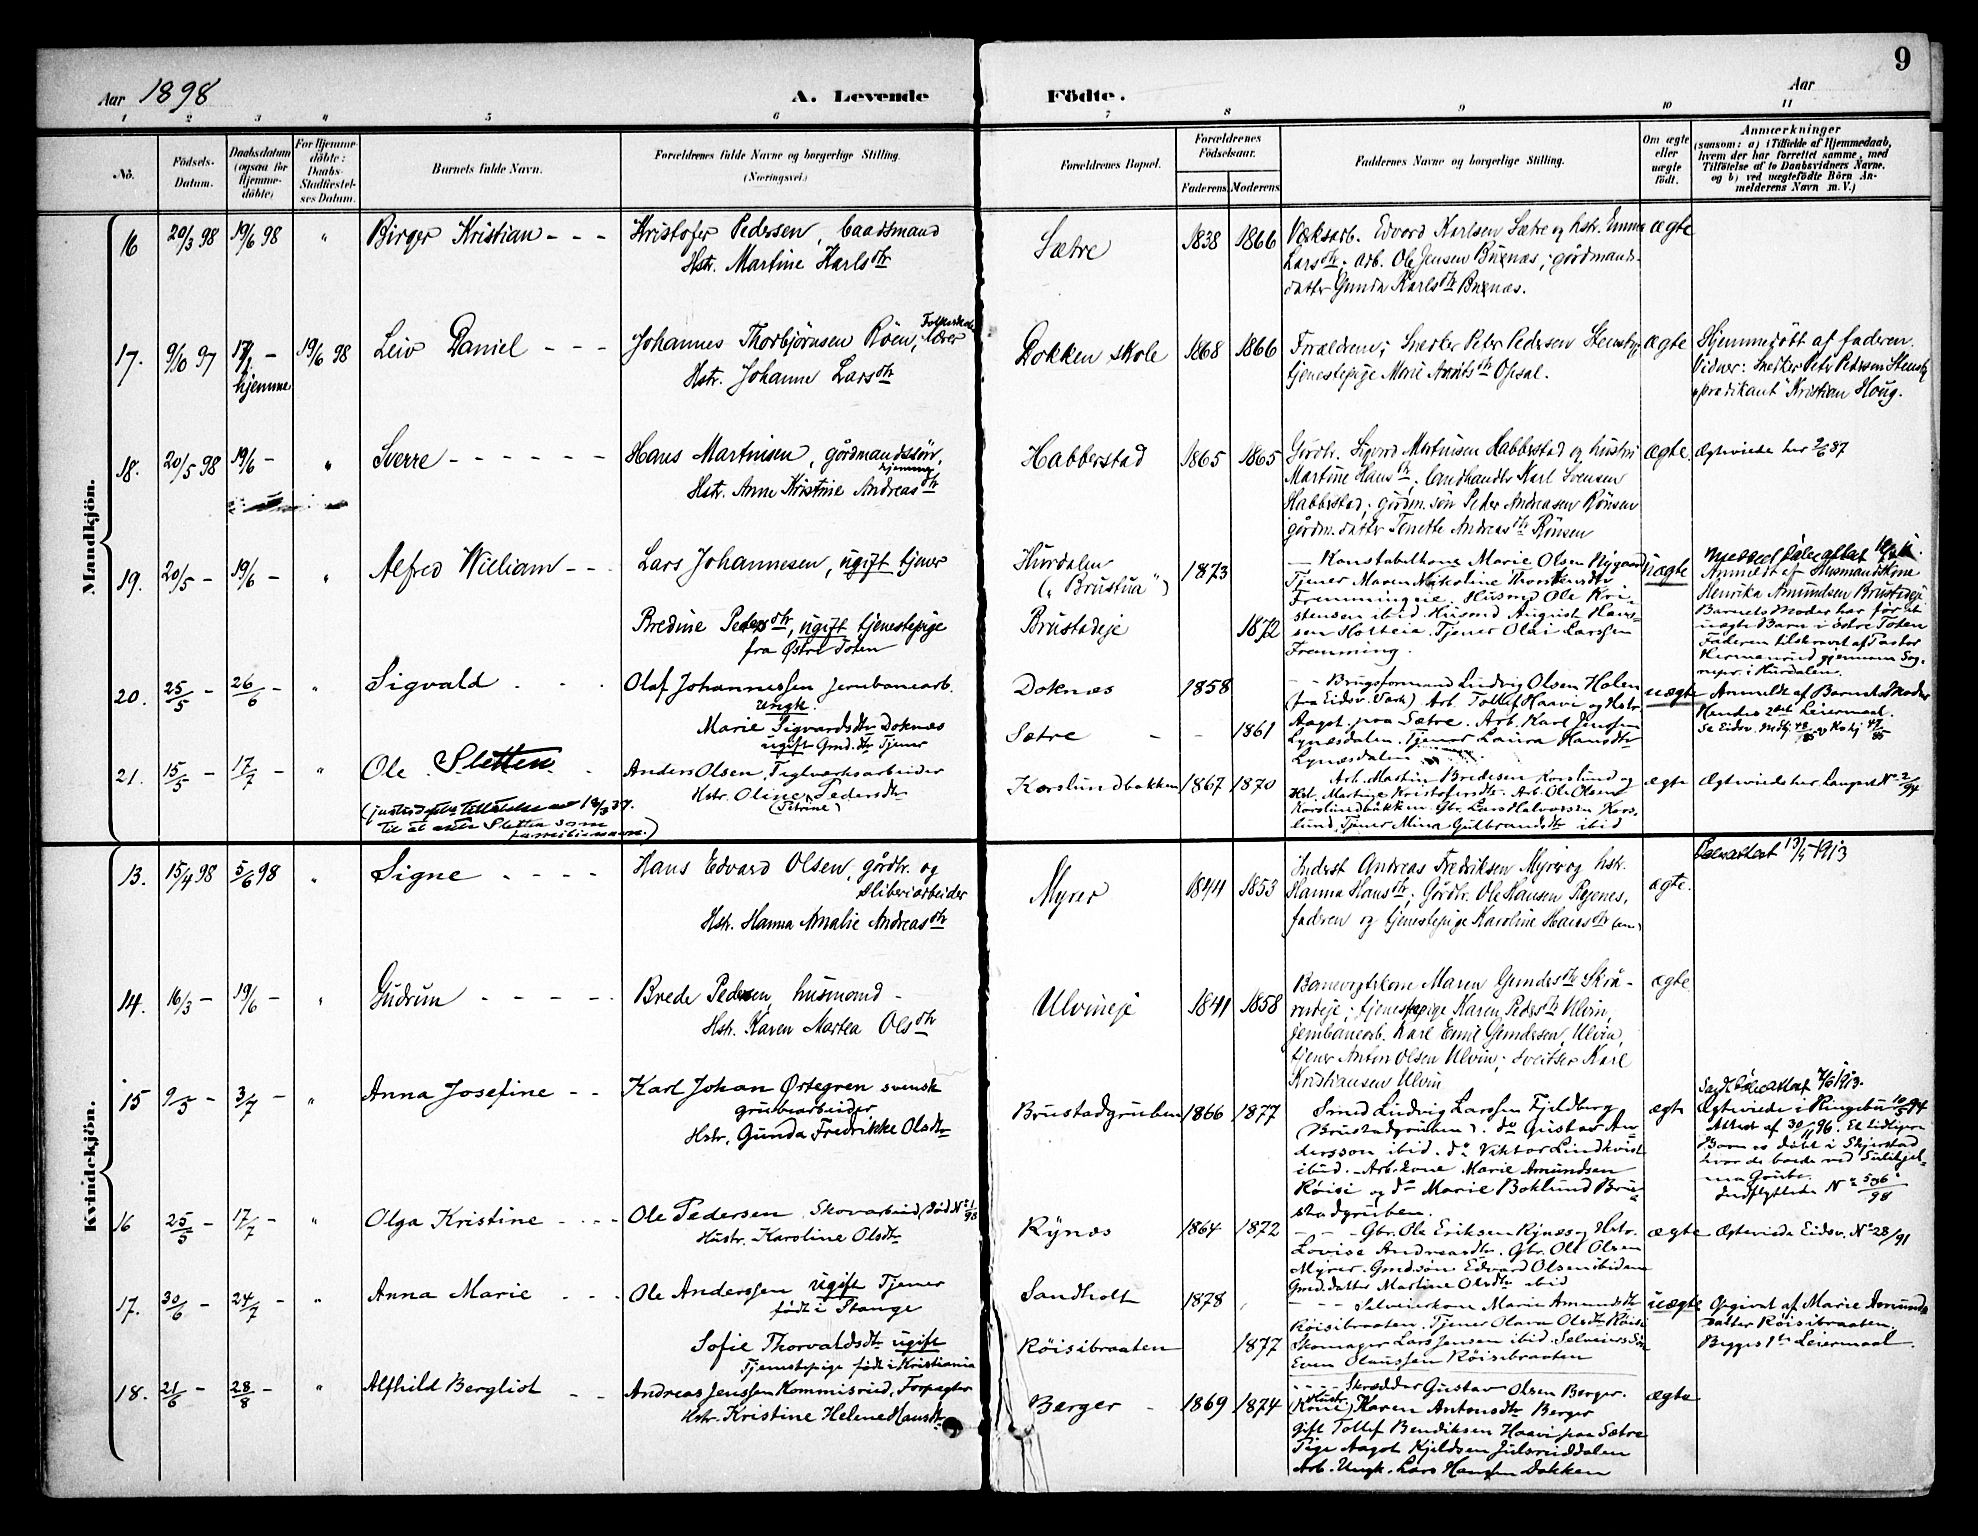 9
Aar 1898
A. Levende
Födte.
Aar
1 2 3 4 5 6 7 8 9 10 11
No.
Födsels-Datum.
Daabsdatum (ogsaa for Hjemme-döbte)
For Hjemme-döbte: Daabs-Stadfæstel-ses Datum.
Barnets fulde Navn.
Forældrenes fulde Navne og borgerlige Stilling.
(Næringsvei.)
Forældrenes Bopæl.
Forældrenes Födselsaar.
Faderens Moderens
Faddernes Navne og borgerlige Stilling.
Om ægte eller uægte födt.
Anmærkninger
(saasom: a) i Tilfælde af Hjemmedaab,
hvem der har forrettet samme, med
Tilföielse af to Daabsvidners Navne.
og b) ved uægtefödte Börn An-
melderens Navn m.V.)
Mandkjön.
16 20/3 98 19/6 98 " Birger Kristian - - - Kristofer Pedersen, baadsmand
Hstr. Martine Karlsdtr
Sætre 1838 1866
Værksarb. Edvard Karlsen Sætre og hstr. Emma
Larsdtr, arb. Ole Jensen Buxnæs, gårdmands-
datter Gunda Karlsdtr Buxnæs.
ægte
17. 9/10 97 17/1 - hjemme 19/6 98 Leiv Daniel - - - Johannes Thorbjörnsen Röen, Folkeskolelærer
Hstr. Johanne Larsdtr
Dokken skole 1868 1866
Forældrene; Snedker Peter Pedersen Stensby
tjenestepige Marie Opsal.
ægte
Hjemmedöbt af faderen.
Vidner: Snedker Peter Pedersen Stensby
"prædikant" Kristian Houg.
18. 20/5 98 19/6 - " Sverre - - - - - - Hans Martinsen, gårdmandssön,
Hstr. Anne Kristine Andreasdtr
Habberstad 1865 1865
Gårdbr. Sigvard Martinsen Habberstad og hustru
Martine Hansdtr, landhandler Karl Svensen
Habberstad, gårdm. sön Peder Andreasen Rönsen
gårdm. datter Tenette Andreasdtr Rönsen
ægte. Ægteviede her 2/6 87
19. 20/5 - 19/6 - " Alfred William - - - Lars Johannesen, ugift tjener
Hurdalen
("Brustua") 1873
Bredine Pedersdtr, ugift tjenestepige
fra Østre Toten
Brustadeje 1872
- Konstabelkone Marie Olsen Nygaard
Tjener Maren Nikoline Thorstensdtr
Fremmingeie. Husmd Ole Kri-
stensen ibid. Husmd August Han-
sen Holteia. Tjener Olai Larssen
Fremming.
uægte
Anmeldt af Husmandskone
Henrika Amundsen Brustadeje
Barnets Moder har för et
uægte Barn i Østre Toten
Faderen tilskrevet af Pastor
Hermanrud gjennem Sog-
nepr. i Hurdalen.
20. 25/5 - 26/6 - " Sigvald - - - Olaf Johannessen jernbanearb.
Ungk.
Marie Sigvardsdtr Doknæs
ugift Gmd.dtr Tjener
Doknæs 1858
Sætre - - 1861
- - Brugsformand Ludvig Olsen Holen
(fra Eidsv. Værk) Arb. Tollef Haavi og Hstr.
Aagot paa Sætre. Arb. Karl Jenssen
Lynæsdalen. Tjener Laura Hansdtr
Lynæsdalen
uægte
Anmeldt af Barnets Moder
Hendes 2det Leiermaal.
21. 15/5 - 17/7 - " Ole Sletten - Anders Olsen, Teglverksarbeider
Hstr. Oline Pedersdtr
(Petrine)
Korslundbakken 1867 1870
Arb. Martin Bredesen Korslund og
Hst. Martine Kristofersdtr. Arb. Ole Olsen
Korslundbakken. Gbr. Lars Halvorssen Kors-
lund. Tjener Mina Gulbrandsdtr ibid
ægte Ægteviede her Langset No 2/94
(justisdepts tillatelse av 18/3 37.
til at anta Sletten som
familienavn.)
Kvindekjön.
13. 15/4 98 5/6 98 " Signe - - - - Hans Edvard Olsen, gårdbr. og
sliberiarbeider
Hstr. Hanna Amalie Andreasdtr
Myrer 1844 1853
Inderst Andreas Fredriksen Myrer og hstr.
Hanna Hansdtr; Gårdbr. Ole Hansen Rejenes,
faderen og tjenestepige Karoline
ægte.
13/5 1913
14. 16/3 - 19/6 - " Gudrun - - - - - Brede Pedersen, husmand -
Hstr. Karen Martea Olsdtr
Ulvineje 1841 1858
Banevogterkone Maren Gundersdtr Skrå-
rudeje; tjenestepige Karen Pedersdtr Ulvin,
Jernbanearb. Karl Emil Gundesen, Ulvin,
tjener Anton Olsen Ulvin; sveitser Karl
Kristiansen Ulvin
ægte
15 9/5 - 3/7 - " Anna Josefine - - Karl Johan Örtegren svensk
grubearbeider
Hstr. Gunda Fredrikke Olsdtr
Brustadgruben 1866 1877
Smed Ludvig Larssen Fjeldberg
(Brustadgruben). do Gustav An-
dersson ibid. do Viktor Lindkvist
ibid. - Arb.kone Marie Amundsen
Röisi og do Marie Boklund Bru-
stadgruben.
ægte
Ægteviede i Ringebu 10/5 94
Attest af 30/11 96. Et tidligere
Barn er döbt i Skjerstad
hvor de boede ved Sulitjel-
ma Grube.
Indflyttede No 506/98
16 25/5 - 17/7 - " Olga Kristine - - - Ole Pedersen Skovarbeid. (Död No 1/98
Hustr. Karoline Olsdtr
Rynæs 1864 1872
- - Gbr. Ole Eriksen Rynæs og Hstr.
Lovise Andreasdtr. Gbr. Ole Olsen
Myrer. Gmd.sön Edvard Olsen ibidem
Gmd.datter Martine Olsdtr ibid
ægte Ægteviede Eidsv. No 28/91
17. 30/6 - 24/7 - " Anna Marie - - - Ole Anderssen ugift Tjener
födt i Stange
Sofie Thorvaldsdtr ugift
Tjenestepige födt i Kristiania
Sandholt 1878
Röisibraaten 1877
- - - Selveierkone Marie Amundsdtr
Röisibraaten. Tjener Olava Olsdtr Röisi
Skomager Lars Jensen ibid. Selveiers Sön
Even Olaussen Röisibraaten
uægte
Opgivet af Marie Amunds-
datter Röisibraaten.
Begges 1ste Leiermaal.
18. 21/6 - 28/8 - " Alfhild Bergliot - - Andreas Jenssen Kommisrud, Forpagter
Hstr. Kristine Helene Hansdtr
Berger - 1869 1874
- - - - Skrædder Gustav Olsen Berger.
(Hustr. Kone) Karen Antonsdtr Berger
Gift Tollef Bendiksen Haavi paa Sætre
Pige Aagot Kjeldsen Julsruddalen
Arb. Ungk. Lars Hanssen Dokken
ægte